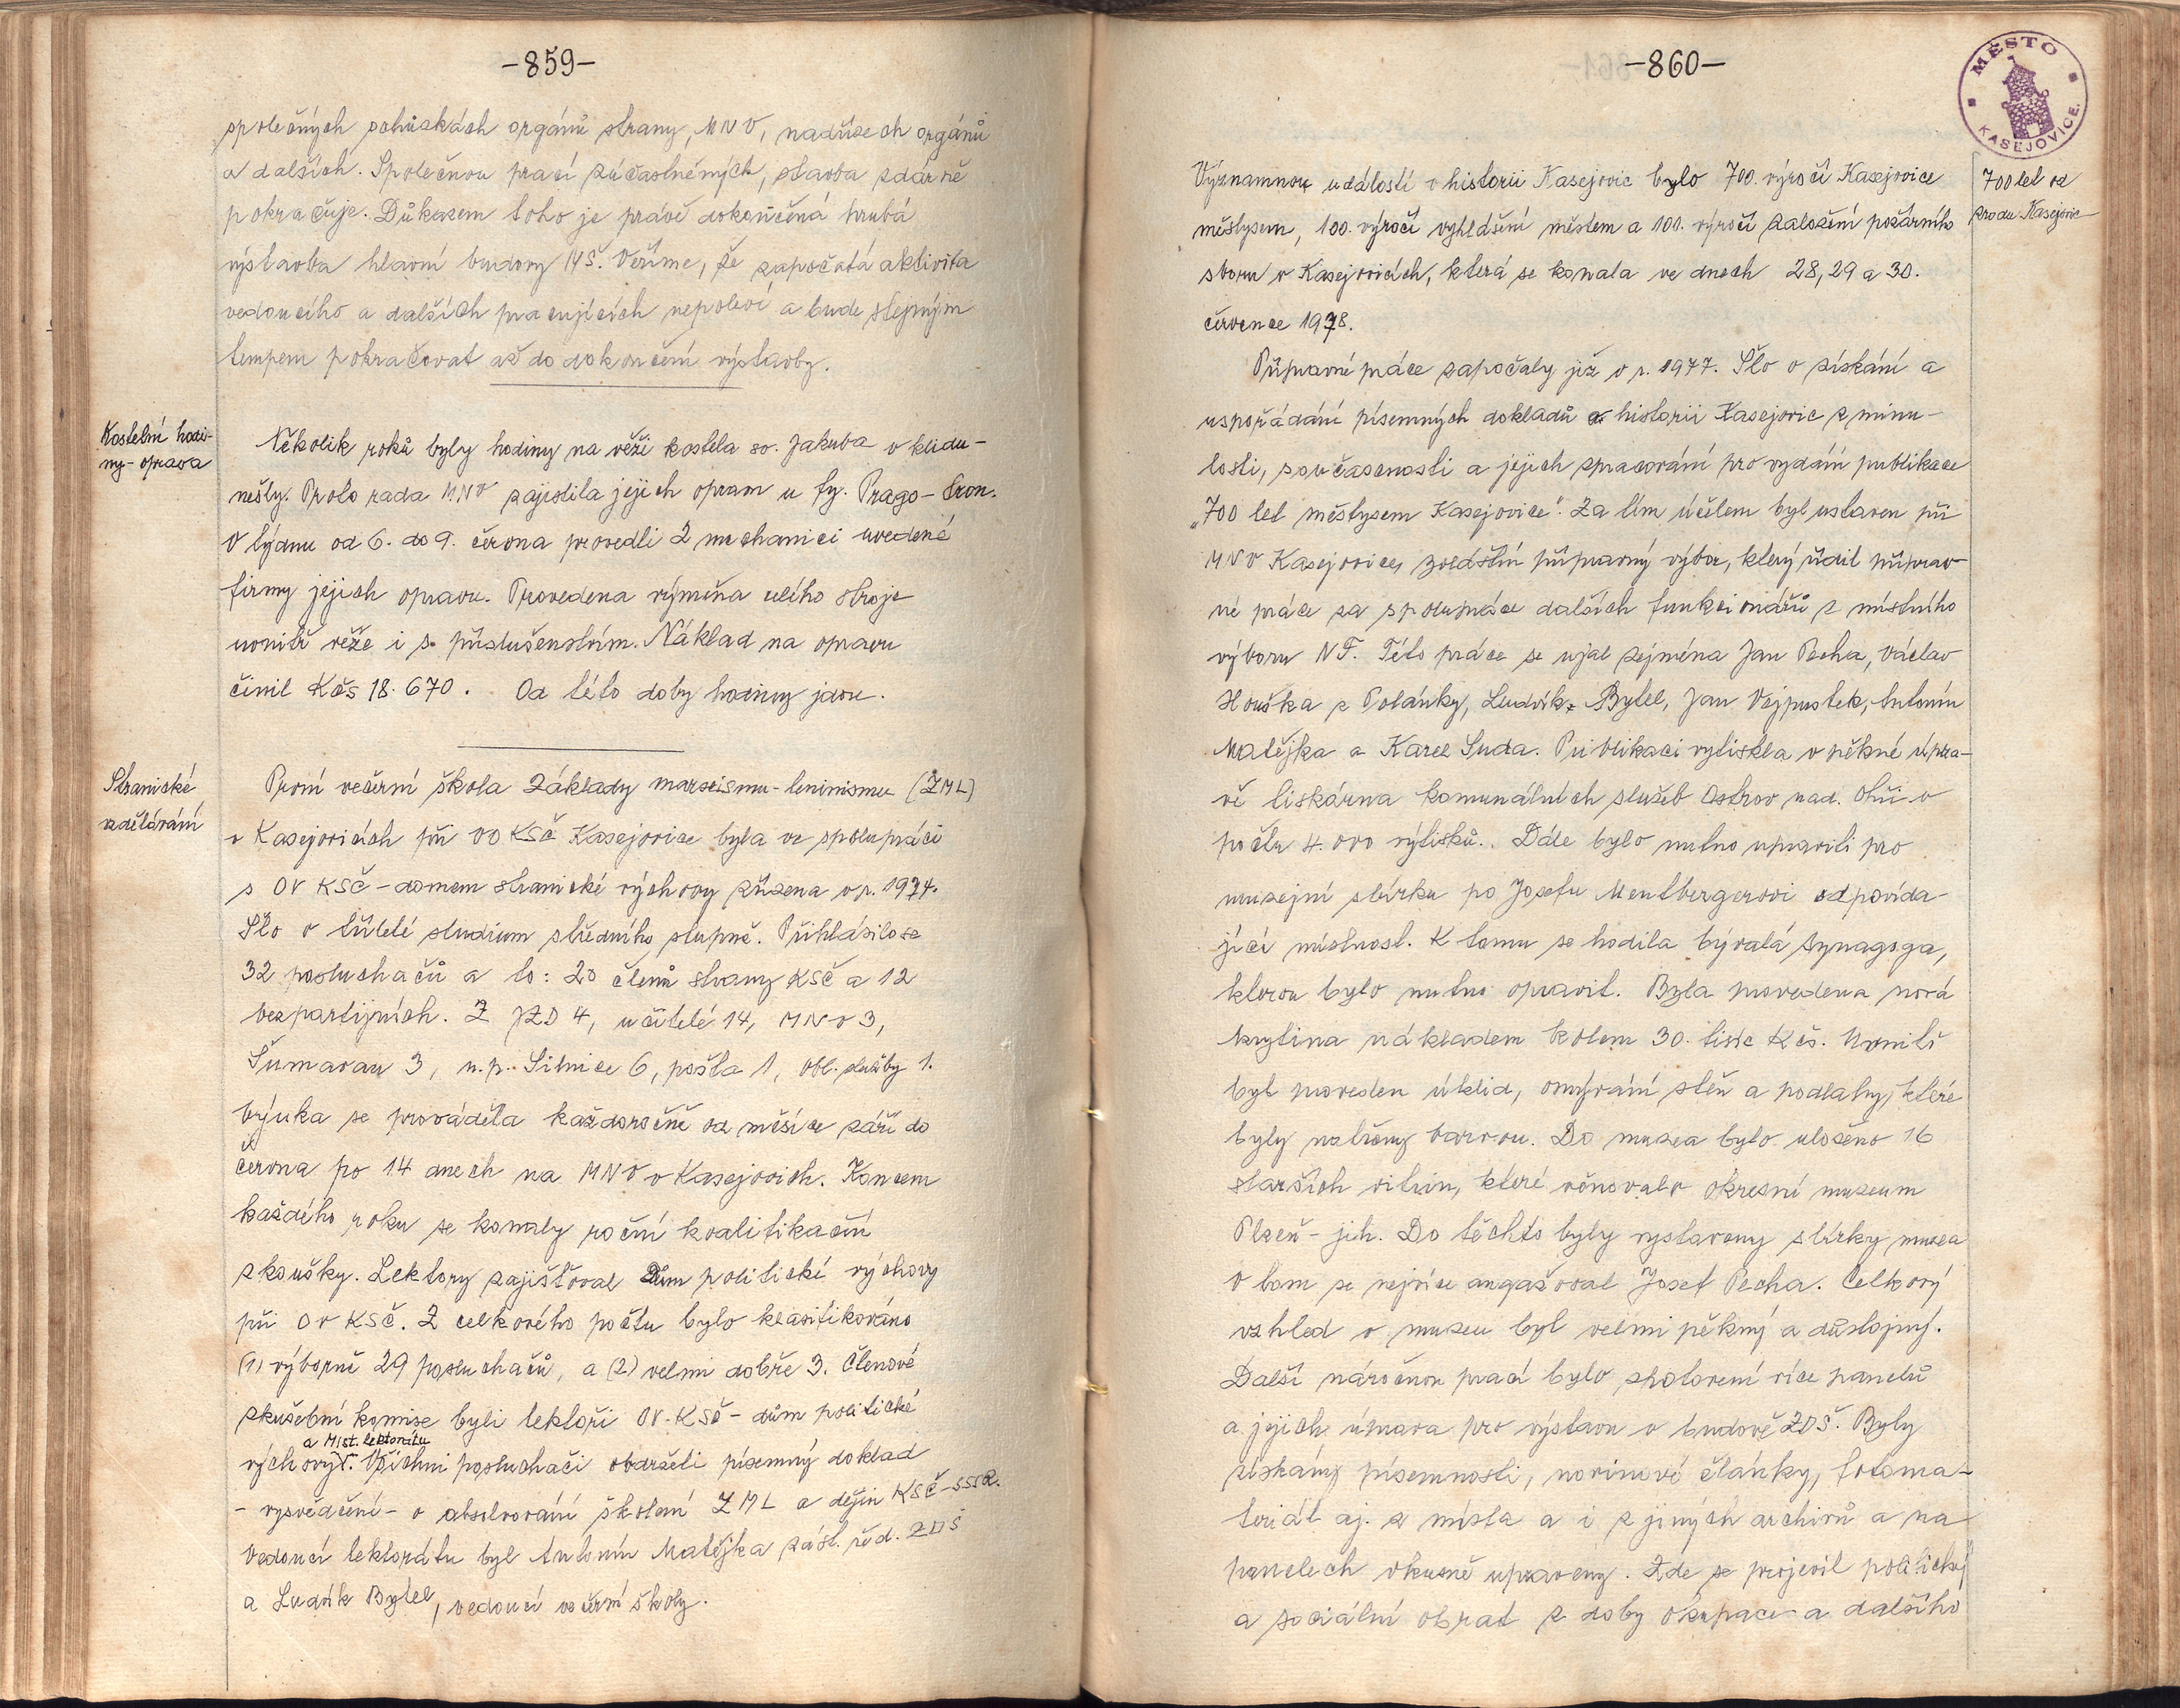 -859-
společných schůzkách orgánů strany, MNV, nadřízech orgánů
a dalších. Společnou prací zúčastněných, stavba zdárně
pokračuje. Důkazem toho je právě dokončená hrubá
výstavba hlavní budovy MŠ. Věříme, že započatá aktivita
vedoucího a dalších pracujících nepoleví a bude stejným
tempem pokračovat až do dokončení výstavby.
Kostelní hodi-
ny - oprava
Několik roků byly hodiny na věži kostela sv. Jakuba v klidu -
nešly. Proto rada MNV zajistila jejich opravu u fy. Prago-tron.
V týdnu od 6. do 9. června provedli 2 mechanici uvedené
firmy jejich opravu. Provedena výměna celého stroje
uvnitř věže i s příslušenstvím. Náklad na opravu
činil Kčs 18.670. Od této doby hodiny jdou.
Stranické
vzdělávání
První večerní škola Základy marxismu-leninismu (ZML)
v Kasejovicích při VO KSČ Kasejovice byla ve spolupráci
s OV KSČ - domem stranické výchovy zřízena v r. 1974.
Šlo o tříleté studium středního stupně. Přihlásilo se
32 posluchačů a to: 20 členů strany KSČ a 12
bezpartijních. Z JZD 4, učitelé 14, MNV 3,
Šumavan 3, n.p. Silnice 6, pošta 1, Obl. služby 1.
Výuka se prováděla každoročně od měsíce září do
června po 14 dnech na MNV v Kasejovich. Koncem
každého roku se konaly roční kvalifikační
zkoušky. Lektory zajišťoval Dům politické výchovy
při OV KSČ. Z celkového počtu bylo klasifikováno
(1) výborně 29 posluchačů, a (2) velmi dobře 3. Členové
zkušební komise byli lektoři OV-KSČ - dům politické
a Míst. lektorátu
výchovy. Všichni posluchači obdrželi písemný doklad
- vysvědčení - o absolvování školení ZML a dějin KSČ-SSSR.
Vedoucí lektorátu byl Antonín Matějka zást. řed. ZDŠ
a Ludvík Bytel, vedoucí večerní školy.
-860-
MĚSTO
KASEJOVICE.
700 let od
zrodu Kasejovic
Významnou událostí v historii Kasejovic bylo 700. výročí Kasejovice
městysem, 100. výročí vyhlášení městem a 100. výročí založení požárního
sboru v Kasejovicích, která se konala ve dnech 28, 29 a 30.
července 1978.
Přípravné práce započaly již v r. 1977. Šlo o získání a
uspořádání písemných dokladů o historii Kasejovic z minu-
losti, současnosti a jejich zpracování pro vydání publikace
„700 let městysem Kasejovice". Za tím účelem byl ustaven při
MNV Kasejovice, zvláštní přípravný výbor, který řídil příprav-
né práce za spolupráce dalších funkcionářů z místního
výboru NF. Této práce se ujal zejména Jan Pecha, Václav
Houška z Polánky, Ludvík Bytel, Jan Vejpustek, Antonín
Matějka a Karel Suda. Publikaci vytiskla v pěkné úpra-
vě tiskárna komunálních služeb Ostrov nad. Ohří v
počtu 4.000 výtisků. Dále bylo nutno upraviti pro
muzejní sbírku po Josefu Mentbergerovi odpovída-
jící místnost. K tomu se hodila bývalá synagoga,
kterou bylo nutno opravit. Byla provedena nová
krytina nákladem kolem 30. tisíc Kčs. Uvnitř
byl proveden úklid, omývání stěn a podlahy, které
byly natřeny barvou. Do muzea bylo uloženo 16
starších vitrin, které věnovalo okresní muzeum
Plzeň - jih. Do těchto byly vystaveny sbírky muzea
V tom se nejvíce angažoval Josef Pecha. Celkový
vzhled v muzeu byl velmi pěkný a důstojný.
Další náročnou prací bylo zhotovení více panelů
a jejich úprava pro výstavu v budově ZDŠ. Byly
získány písemnosti, novinové články, fotoma-
teriál aj. z místa a i z jiných archivů a na
panelech vkusně upraveny. Zde se projevil politický
a sociální obraz z doby okupace a dalšího